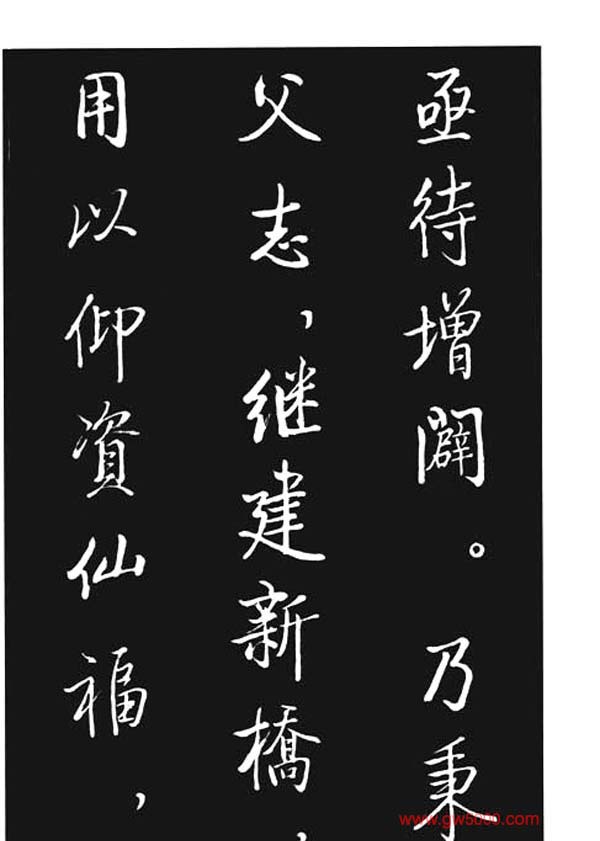 亟待增闢。乃秉
父志，继建新橋，
用以仰資仙福，
www.gw5000.com